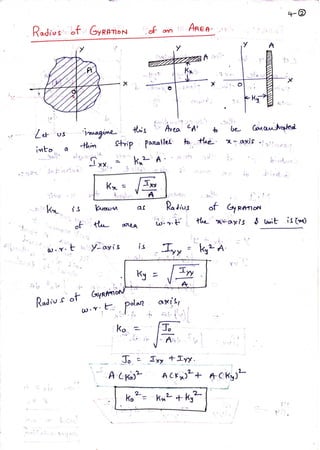 4-②
Radius of GYRATION of an AREA.
y
A
x
y
A
Kx
o
x
y
A
o
x
Ky
Let us imagine this Area 'A' to be Concentrated
into a thin strip parallel to the x-axis.
Ixx = Kx² A
Kx = √(Ixx/A)
Kx is known as Radius of GYRATION
of the area w.r.t the x-axis & unit is (m)
w.r.t y-axis is Iyy = Ky² A
Ky = √(Iyy/A)
Radius of GYRATION
w.r.t polar axis,
Ko = √(Io/A)
Io = Ixx + Iyy.
A(Ko)² A(Kx)² + A(Ky)²
Ko² = Kx² + Ky²